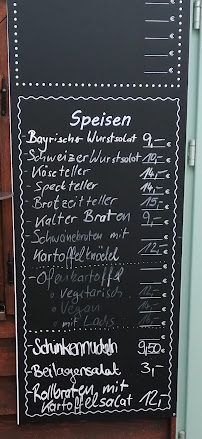 €
€
€
€
Speisen
- Bayrischer Wurstsalat 9,- €
- Schweizer Wurstsalat 10,- €
- Käseteller 14,- €
- Speckteller 14,- €
- Brotzeitteller 15,- €
- Kalter Braten 9,- €
- Schweinebraten mit
Kartoffelknödel 12,- €
- Ofenkartoffel €
o Vegetarisch 12,- €
o Vegan €
o mit Lachs €
- Schinkennudeln 9,50 €
- Beilagensalat 3,- €
- Rollbraten mit
Kartoffelsalat 12,- €